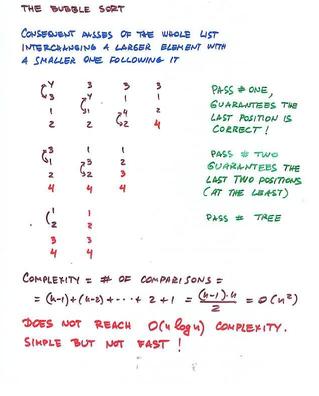 THE BUBBLE SORT
CONSEQUENT PASSES OF THE WHOLE LIST
INTERCHANGING A LARGER ELEMENT WITH
A SMALLER ONE FOLLOWING IT
4 3 3 3
3 4 1 1
1 1 4 2
2 2 2 4
PASS # ONE,
GUARANTEES THE
LAST POSITION IS
CORRECT!
3 1 1
1 3 2
2 2 3
4 4 4
PASS # TWO
GUARANTEES THE
LAST TWO POSITIONS
(AT THE LEAST)
1 1
2 2
3 3
4 4
PASS # TREE
COMPLEXITY = # OF COMPARISONS =
= (n-1)+(n-2)+ ··· + 2 + 1 = (n-1)·n / 2 = O(n²)
DOES NOT REACH O(n log n) COMPLEXITY.
SIMPLE BUT NOT FAST!